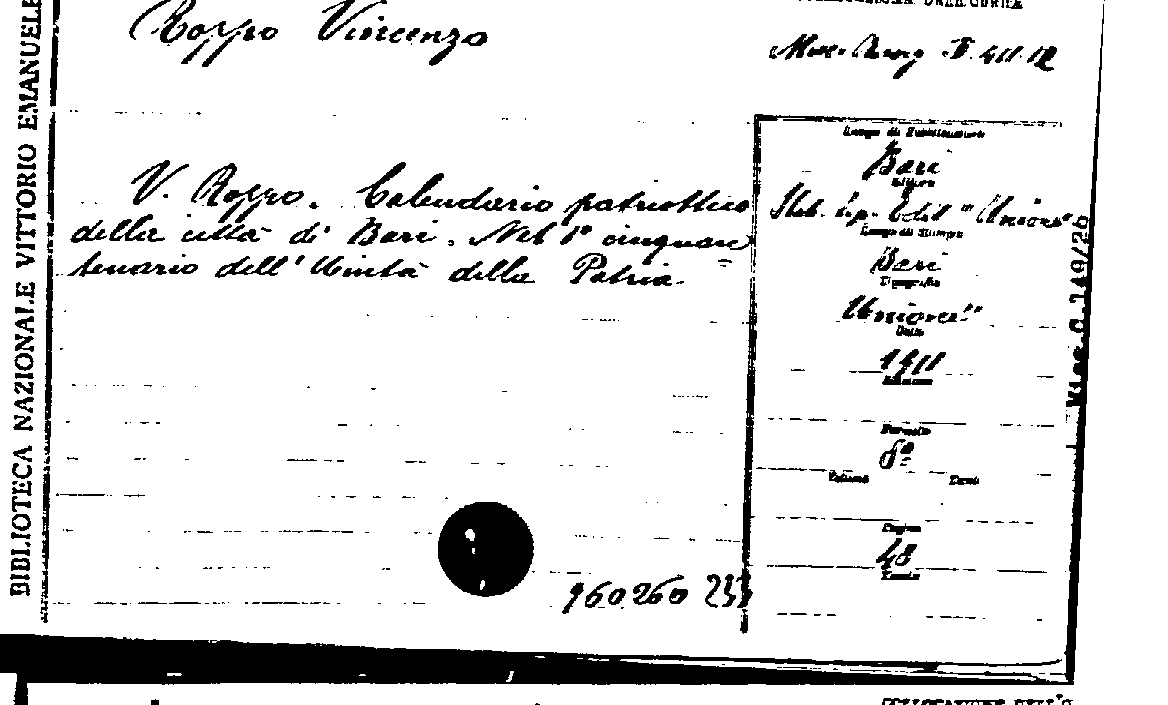 BIBLIOTECA NAZIONALE VITTORIO EMANUELE
COLLOCAZIONE DELL'OPERA
Roppo Vincenzo
II. 411. 12
V. Roppo. Calendario patriottico
della città di Bari. Nel 1° cinquan=
tenario dell'Unità della Patria.
Luogo di Pubblicazione
Bari
Editore
Stab. tip. Edit "Unione"
Luogo di Stampa
Bari
Tipografia
"Unione"
Data
1911
Edizione
Formato
8°
Volume
Pagine
48
Tavole
Misc. C.149/26
960260 233
COLLOCAZIONE DELL'O